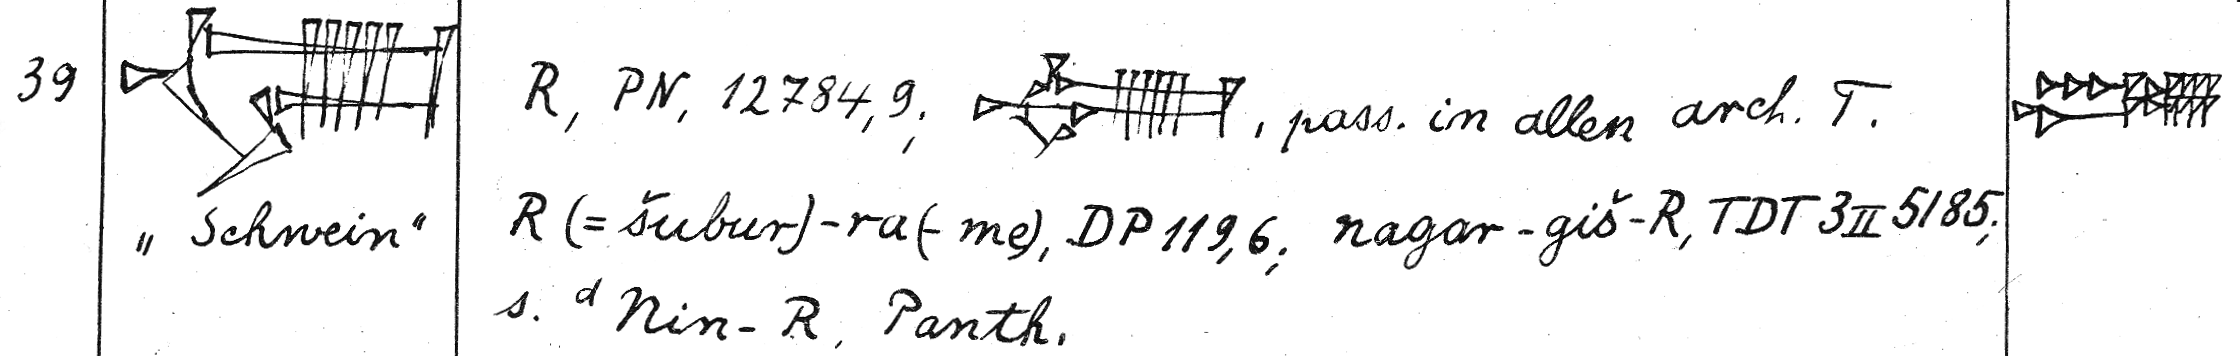 39
„Schwein“
R, PN, 12784,9; , pass. in allen arch. T.
R (= šubur)-ra(-me), DP 119,6; nagar-giš-R, TDT 3 II 5185;
s. ᵈNin-R, Panth.